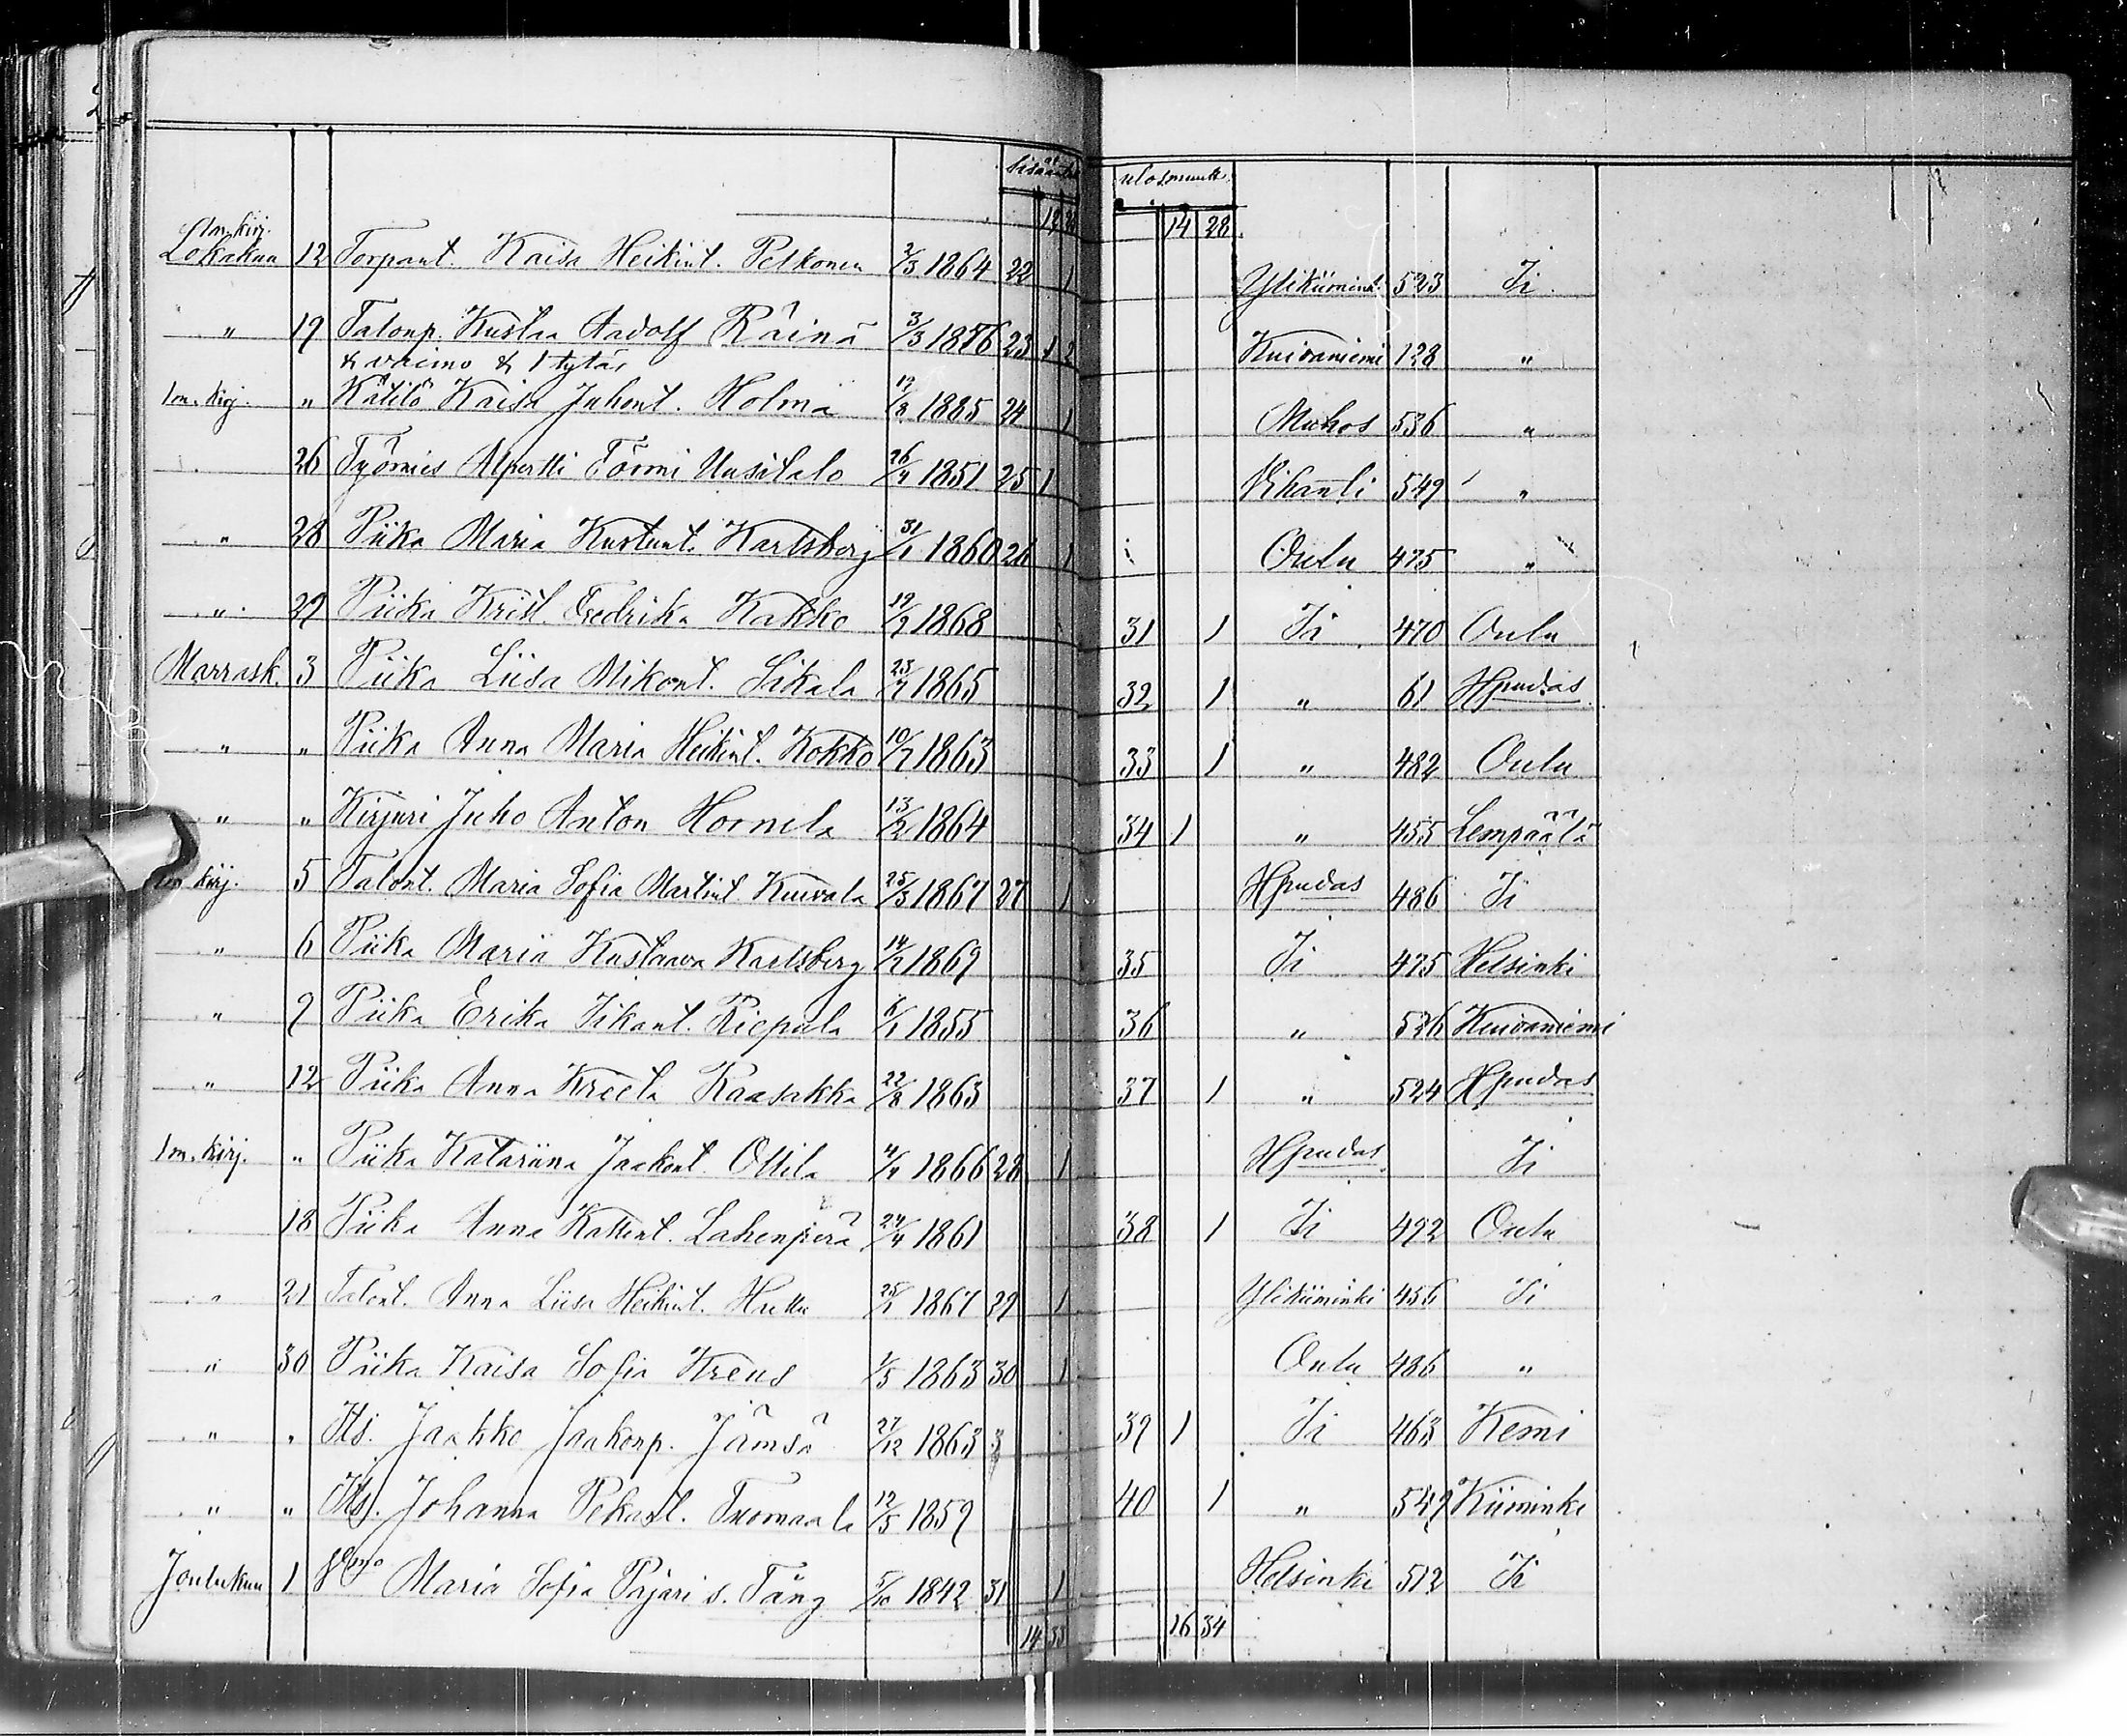 sisäänm. ulosmuutt.
12 14 28
1m. kirj.
Lokakuu 12 Torpant. Kaisa Heikint. Pelkonen 2/3 1864 22 1 Ylikiimink. 523 Ii
" 19 Talonp. Kustaa Aadolf Räinä 3/3 1876 23 1 2 Kuivaniemi 128 "
& vaimo & 1 tytär
1m. kirj. " Kätilö Kaisa Juhont. Holma 1885 24 1 Muhos 536 "
26 Työmies Alpertti Törmi Uusitalo 26/4 1851 25 1 Vihanti 549 "
" 28 Piika Maria Kustaant. Karlsberg 31/1 1860 26 1 Oulu 475 "
" 29 Piika Krist. Fredrika Kakko 1868 31 1 Ii 470 Oulu
Marrask. 3 Piika Liisa Mikont. Sikala 1865 32 1 " 61 Hpudas
" " Piika Anna Maria Heikint. Kokko 1863 33 1 " 482 Oulu
" " Kirjuri Juho Anton Hornela 13/2 1864 34 1 " 455 Lempäälä
1m. kirj. 5 Talont. Maria Sofia Martint. Kuivala 25/3 1867 27 1 Hpudas 486 Ii
" 6 Piika Maria Kustaava Karlsberg 1869 35 Ii 475 Helsinki
" 9 Piika Erika Iikant. Riepula 1855 36 " 526 Kuivaniemi
" 12 Piika Anna Kreeta Raasakka 22/8 1863 37 1 " 524 Hpudas
1m. kirj. " Piika Katariina Jaakont. Ollila 4/4 1866 28 1 Hpudas Ii
18 Piika Anna Kallent. Lahenperä 24/4 1861 38 1 Ii 492 Oulu
" 21 Talont. Anna Liisa Heikint. Huttu 1867 29 1 Ylikiiminki 456 Ii
" 30 Piika Kaisa Sofia Kreus 1/5 1863 30 1 Oulu 486 "
" " Its. Jaakko Jaakonp. Jämsä 27/12 1863 39 1 Ii 463 Kemi
" " Its. Johanna Pekant. Tuomaala 12/5 1859 40 1 " 549 Kiiminki
Joulukuu 1 Vmo Maria Sofia Pajari s. Täng 5/10 1842 31 1 Helsinki 512 Ii
14 33 16 34